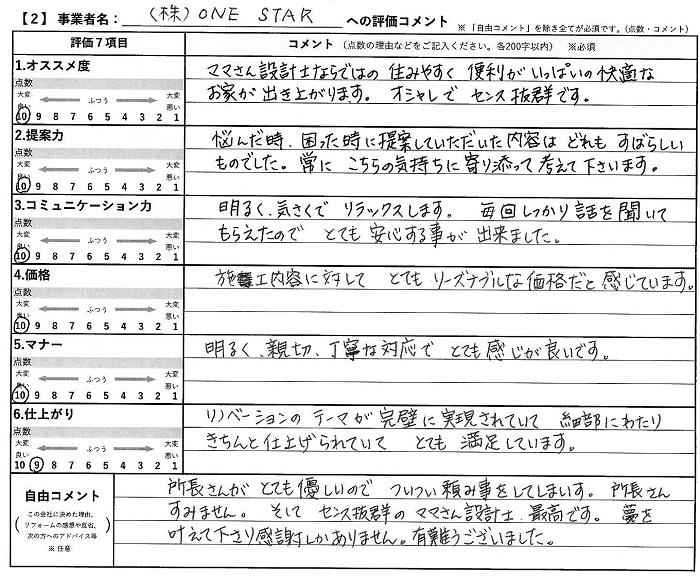 【2】事業者名： (株) ONE STAR への評価コメント ※「自由コメント」を除き全てが必須です。(点数・コメント)
評価7項目 コメント（点数の理由などをご記入ください。各200字以内） ※必須
1.オススメ度
点数
大変 良い ふつう 大変 悪い
10 9 8 7 6 5 4 3 2 1
ママさん設計士ならではの 住みやすく 便利がいっぱいの快適な
お家が出き上がります。オシャレで センス抜群です。
2.提案力
点数
大変 良い ふつう 大変 悪い
10 9 8 7 6 5 4 3 2 1
悩んだ時、困った時に提案していただいた内容は どれも すばらしい
ものでした。常に こちらの気持ちに寄り添って考えて下さいます。
3.コミュニケーション力
点数
大変 良い ふつう 大変 悪い
10 9 8 7 6 5 4 3 2 1
明るく、気さくで リラックスします。 毎回しっかり話を聞いて
もらえたので とても 安心する事が 出来ました。
4.価格
点数
大変 良い ふつう 大変 悪い
10 9 8 7 6 5 4 3 2 1
施工内容に対して とても リーズナブルな価格だと 感じています。
5.マナー
点数
大変 良い ふつう 大変 悪い
10 9 8 7 6 5 4 3 2 1
明るく、親切、丁寧な対応で とても感じが良いです。
6.仕上がり
点数
大変 良い ふつう 大変 悪い
10 9 8 7 6 5 4 3 2 1
リノベーションの テーマが 完璧に 実現されていて 細部にわたり
きちんと仕上げられていて とても 満足しています。
自由コメント
この会社に決めた理由、
リフォームの感想や反省、
次の方へのアドバイス等
※ 任意
所長さんが とても優しいので ついつい 頼み事をしてしまいます。 所長さん
すみません。 そして センス抜群の ママさん設計士、最高です。 夢を
叶えて下さり感謝しかありません。有難うございました。